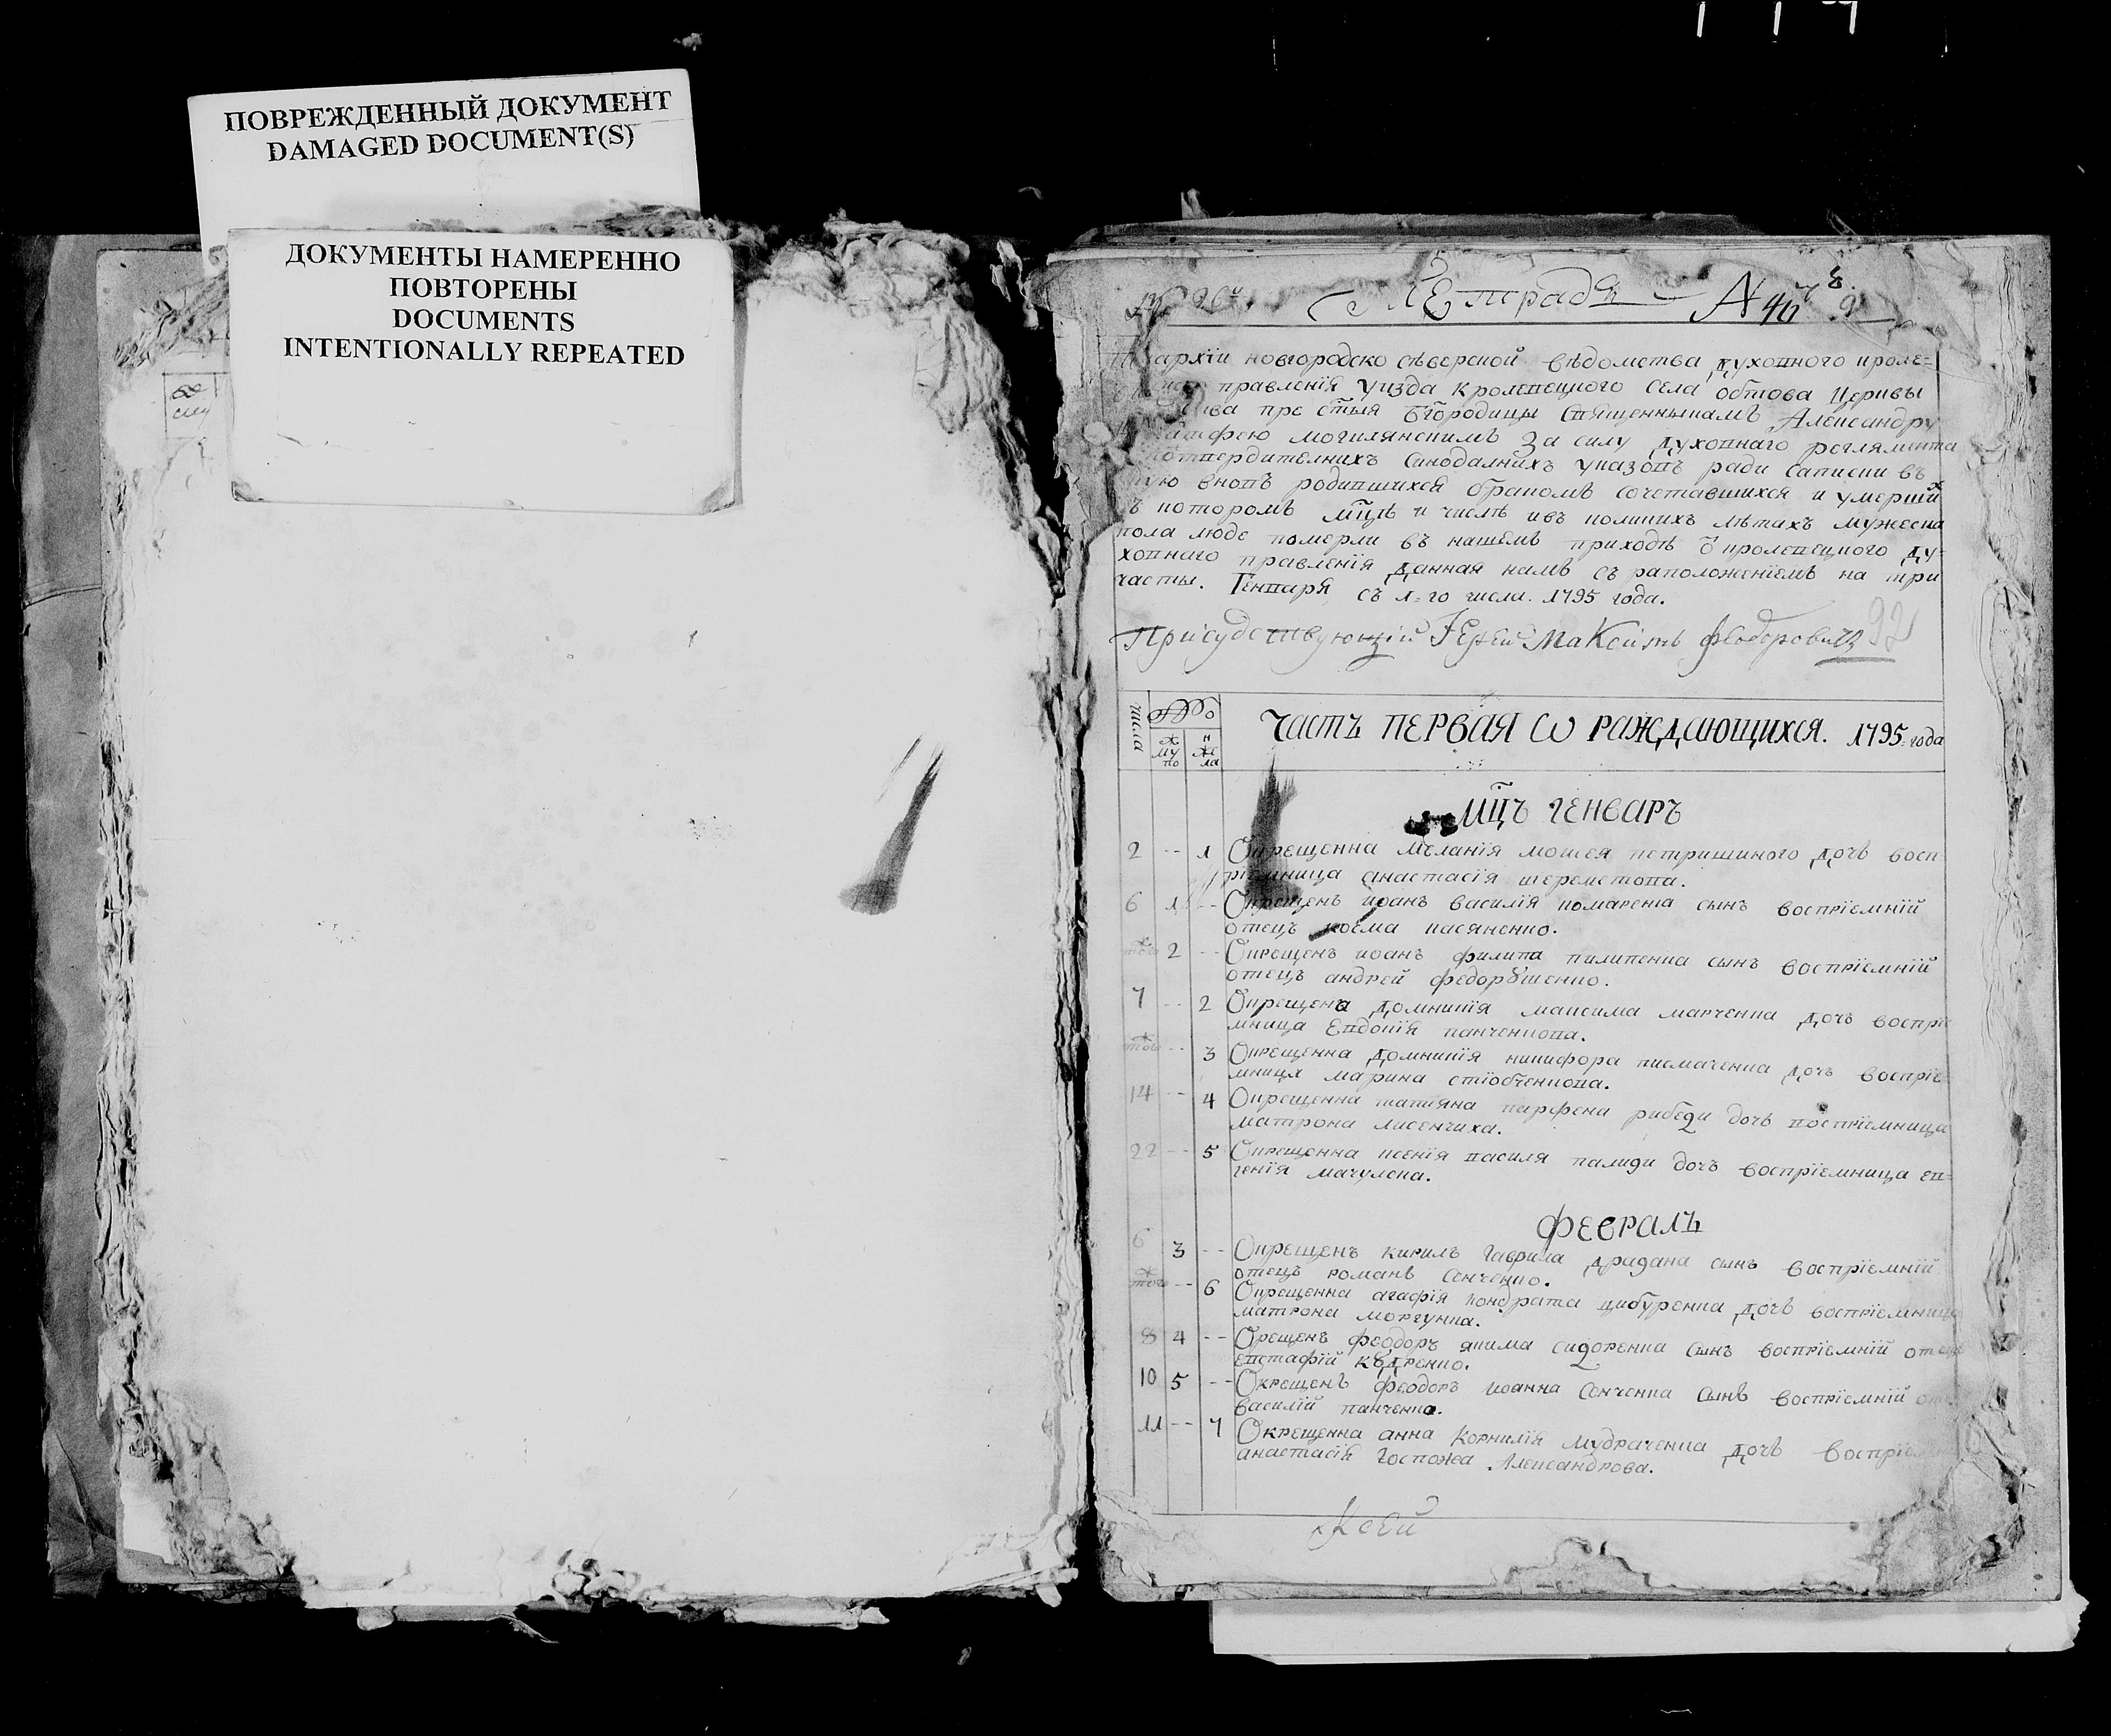 ПОВРЕЖДЕННЫЙ ДОКУМЕНТ
DAMAGED DOCUMENT(S)
ДОКУМЕНТЫ НАМЕРЕННО
ПОВТОРЕНЫ
DOCUMENTS
INTENTIONALLY REPEATED
Тетрадь
новгородско сѣверской вѣдомства духовного кроле=
правленія уизда кролевецкого села обтова церкви
престыя бгородицы священникамъ Александру
могилянскимъ за силу духовнаго реглямента
потвердителнихъ синодалнихъ указовъ ради записки въ
вновъ родившихся бракомъ сочетавшихся и умерших
въ которомъ мцѣ и числѣ и въ коликихъ лѣтахъ мужеска
пола люде померли въ нашемъ приходѣ кролевецкого ду=
ховнаго правленія данная намъ съ раположеніемъ на три
части. Генваря съ 1=го числа. 1795 года.
Присудствующій Іерей Максимъ Феодоровичъ 92
числа
мужо по
часть первая ѡ раждающихся. 1795=года
мцъ генваръ
2 -- 1 Окрещенна меланія мойсея петришиного дочъ восп
ріемница анастасія шереметова.
6 1 -- Окрещенъ иоанъ василія комаренка сынъ воспріемній
отецъ косма касяненко.
тогож 2 -- Окрещенъ иоанъ филипа пилипенка сынъ воспріемній
отецъ андрей федорꙋшенко.
7 -- 2 Окрещена домникія максима марченка дочъ воспріе
мница Евдокія панченкова.
тогож -- 3 Окрещенна домникія никифора писмаченка дочъ воспріе=
мница марина
14 -- 4 Окрещенна татияна парфена рибеди дочъ воспріемница
матрона лисенчиха.
22 -- 5 Окрещенна ксенія василя палиди дочъ воспріемница ев=
генія мачулска.
Февралъ
6 3 -- Окрещенъ кирилъ гаврила драдана сынъ воспріемній
отецъ романъ сенченко.
тогож -- 6 Окрещенна агафія кондрата цибуренка дочъ воспріемница
матрона моргунка.
8 4 -- Орещенъ феодоръ якима сидоренка сынъ воспріемній отецъ
евстафій кꙋдренко.
10 5 -- Окрещенъ феодоръ иоанна сенченка сынъ воспріемній
василій панченко.
11 -- 7 Окрещенна анна корнилія мудраченка дочъ
анастасія госпожа Александрова.